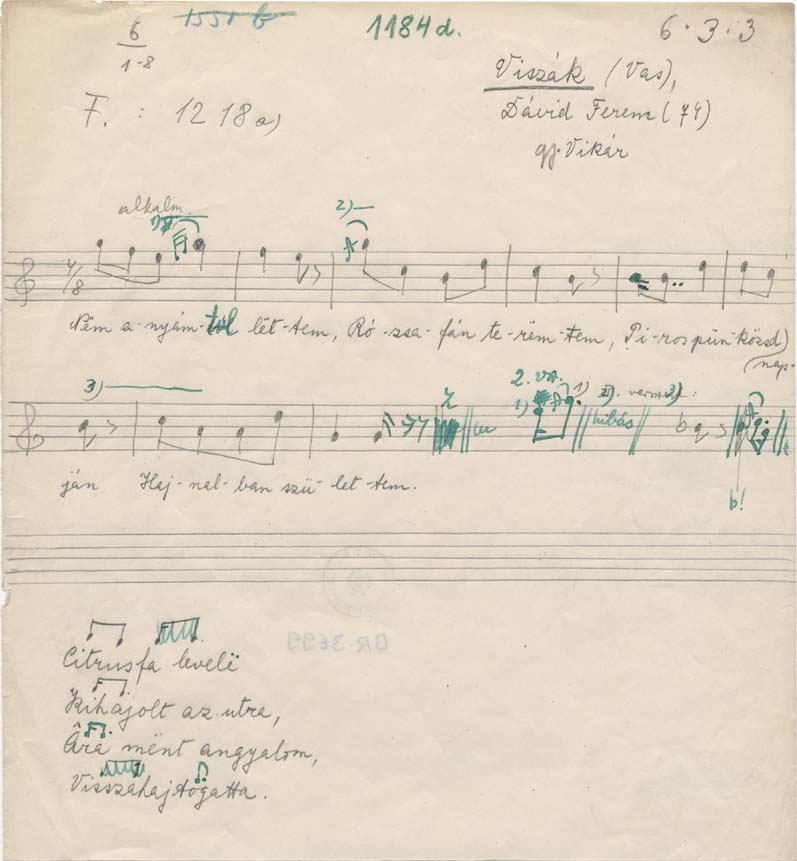 6 1551 b 1184 d. 6.3.3
1-8
Viszák (Vas),
F. : 1218 a)
Dávid Ferenc (74)
gy. Vikár
alkalm. 2)
4/8
Nëm a-nyám-tul lët-tem, Ró-zsa-fán te-rëm-tem, Pi-ros pün-közsd)
(nap-
3) 2. vsz. 1)
1) hibás b
b!
ján Haj-nal-ban szü-let-tem.
BR 3699
Citrusfa levelë
Kihajolt az utra,
Âra mënt angyalom,
Visszahajtogatta.